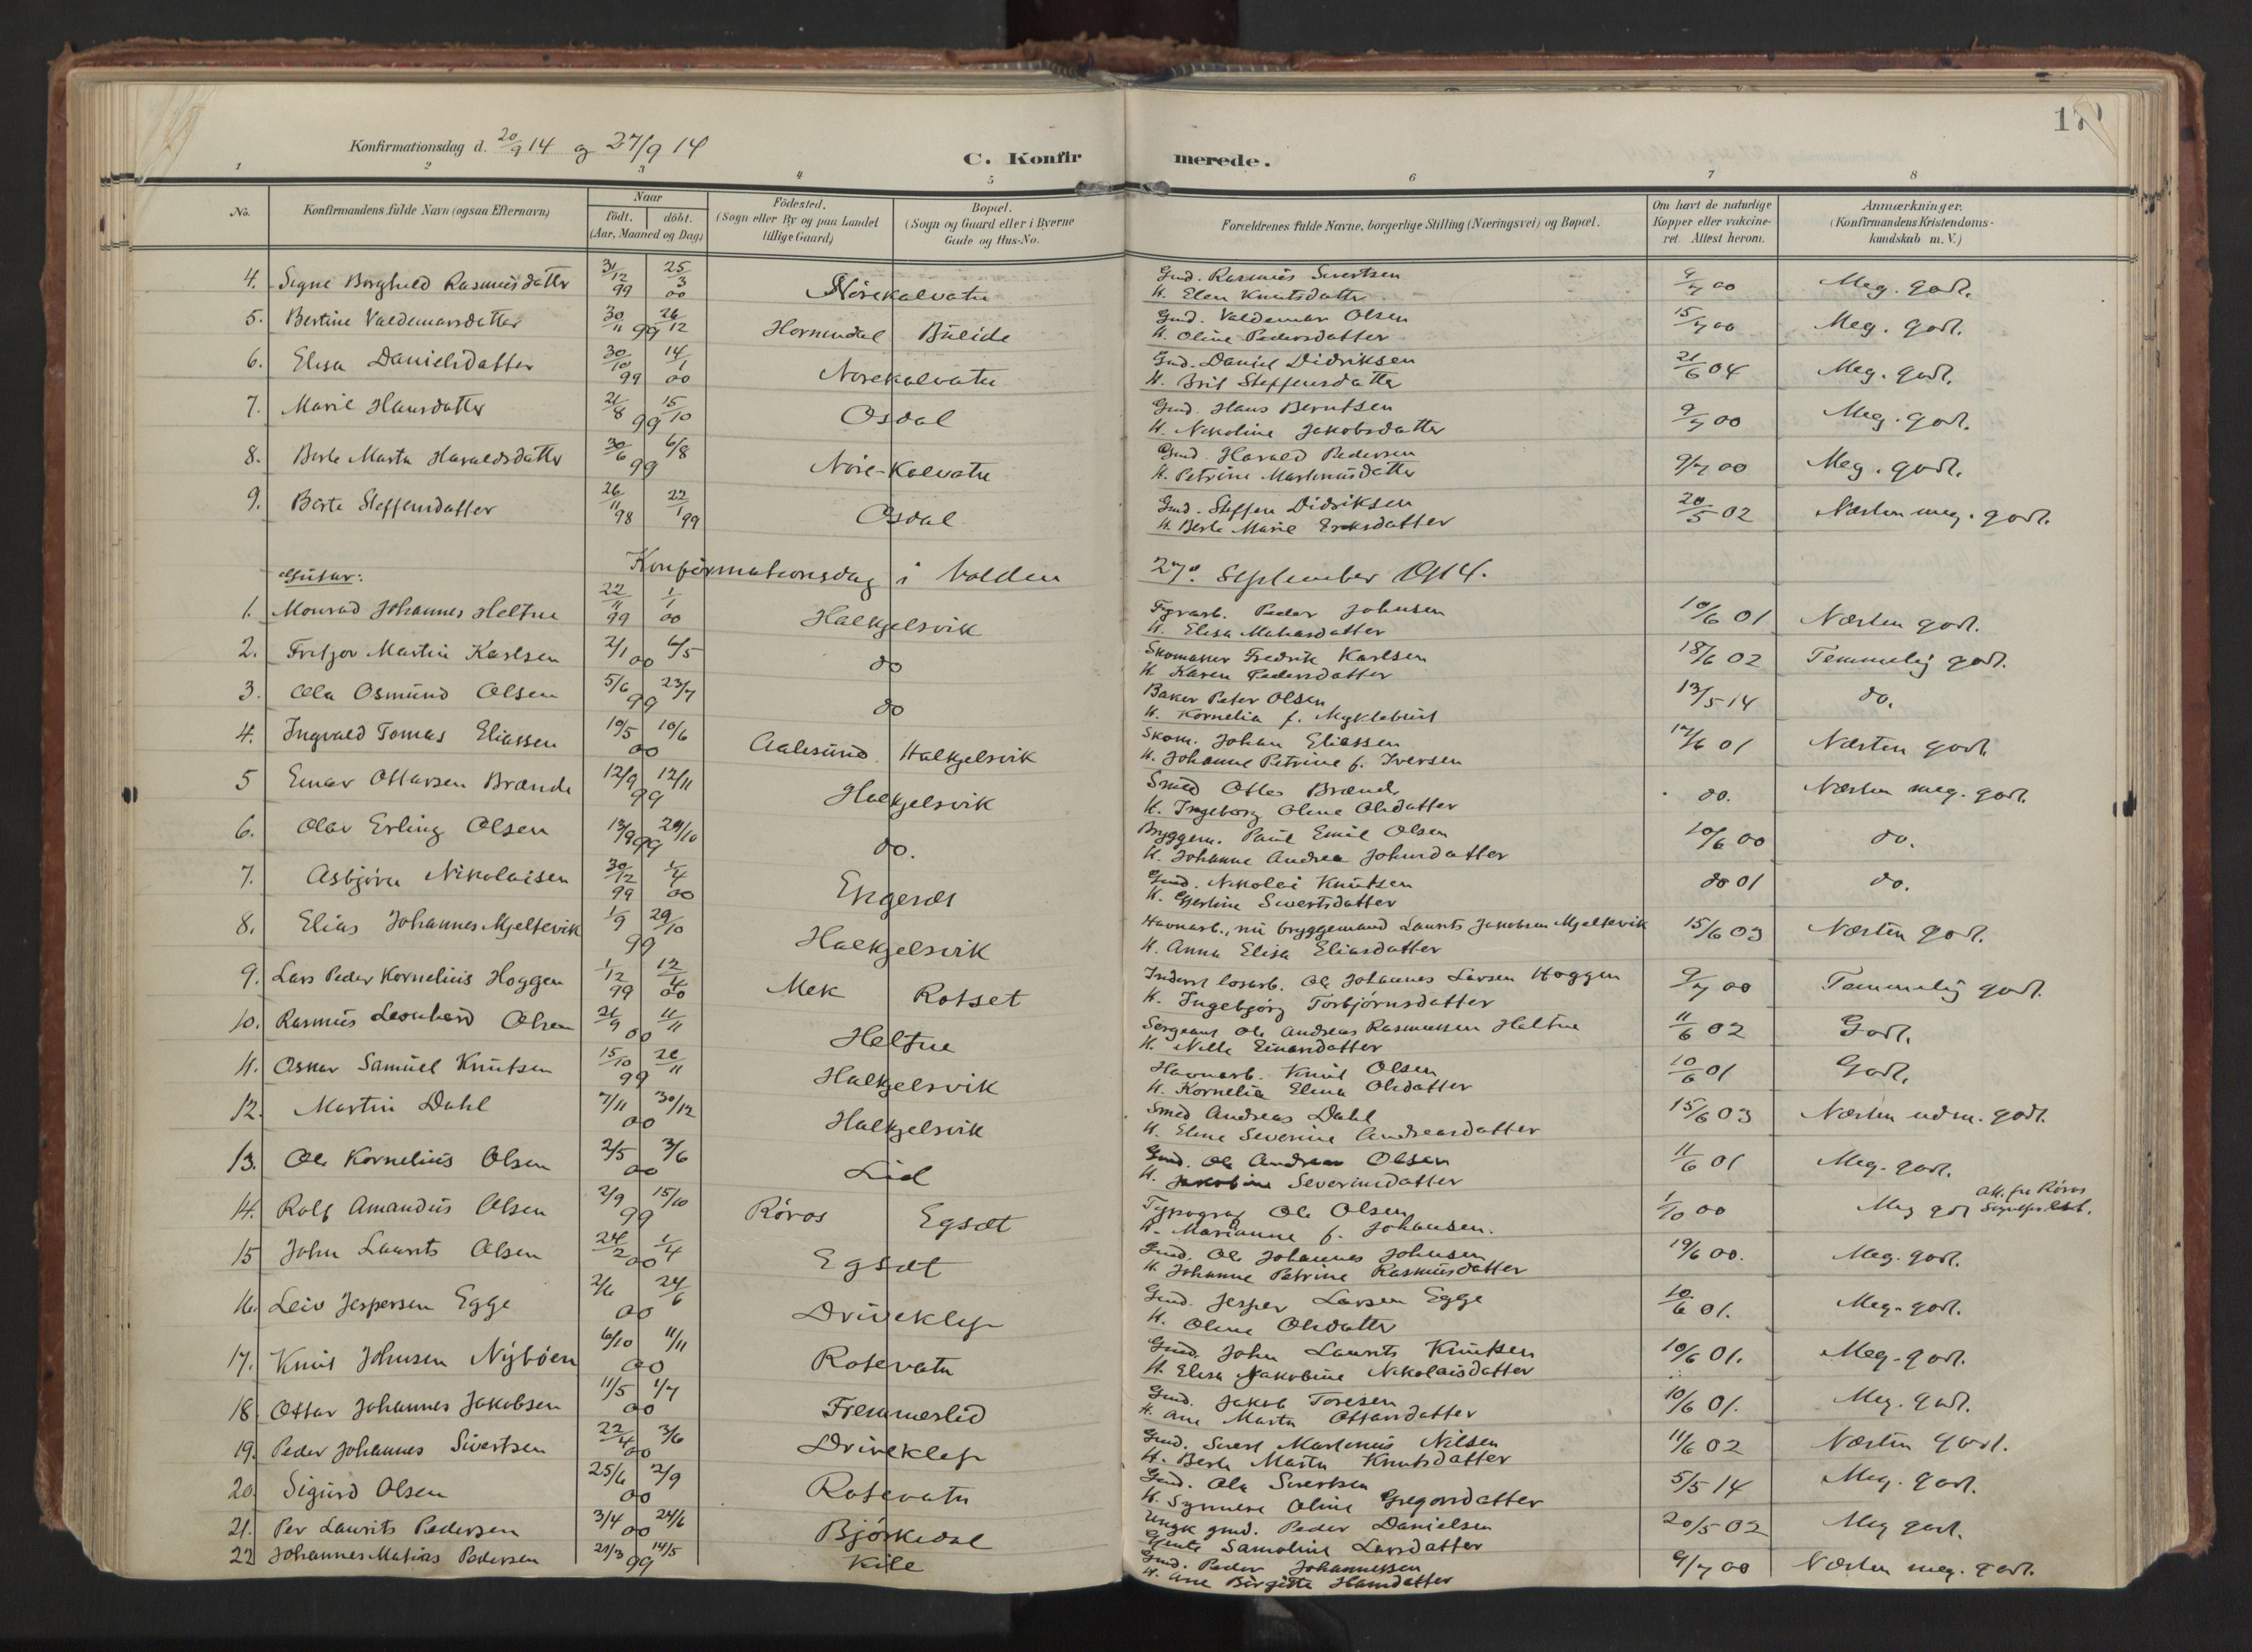 17
Konfirmationsdag d. 20/9 14 og 27/9 14
C. Konfir merede.
1 2 3 4 5 6 7 8
No. Konfirmandens fulde Navn (ogsaa Efternavn) Naar födt. döbt. (Aar, Maaned og Dag) Födested. (Sogn eller By og paa Landet tillige Gaard) Bopæl. (Sogn og Gaard eller i Byerne Gade og Hus-No. Forældrenes fulde Navne, borgerlige Stilling (Næringsvei) og Bopæl. Om havt de naturlige Kopper eller vakcineret. Attest herom. Anmærkninger. (Konfirmandens Kristendomskundskab m. V.)
4. Signe Borghild Rasmusdatter 31/12 99 25/3 00 Nörekalvatn Gmd. Rasmus Sivertsen 9/7 00 Meg. godt.
H. Elen Knutsdatter
5. Bertine Valdemarsdatter 30/11 99 26/12 Hornindal Gmd. Valdemar Olsen 15/7 00 Meg. godt.
H. Oline Pedersdatter
6. Elisa Danielsdatter 30/10 99 14/1 00 Norekalvatn Gmd. Daniel Didriksen 21/6 04 Meg. godt.
H. Brit Steffensdatter
7. Marie Hansdatter 21/8 99 15/10 Osdal Gmd. Hans Berntsen 9/7 00 Meg. godt.
H. Nikoline Jakobsdatter
8. Berte Marta Haraldsdatter 30/6 99 6/8 Nore-Kalvatn Gmd. Harald Pedersen 9/7 00 Meg. godt.
H. Petrine Martinusdatter
9. Berte Steffensdatter 26/11 98 22/1 99 Osdal Gmd. Steffen Didriksen 20/5 02 Næsten meg. godt.
H. Berte Marie Eriksdatter
Konfirmationsdag i Volden 27de September 1914.
Gutar:
1. Monrad Johannes Heltne 22/11 99 1/1 00 Halkjelsvik Peder Johnsen 10/6 01 Næsten godt.
H. Elisa Matiasdatter
2. Fritjov Martin Karlsen 2/1 00 6/5 do Skomaker Fredrik Karlsen 18/6 02 Temmelig godt.
H. Karen Pedersdatter
3. Ola Osmund Olsen 5/6 99 23/7 do Baker Peter Olsen 13/5 14 do.
H. Kornelia f. Myklebust
4. Ingvald Tomas Eliassen 10/5 00 10/6 Aalesund. Halkjelsvik Skom. Johan Eliassen 17/6 01 Næsten godt
H. Johanne Petrine f. Iversen
5 Einar Ottarsen Brænde 12/9 99 12/11 Halkjelsvik Smed Otter Brænde do. Næsten meg. godt.
H. Ingeborg Oline Olsdatter
6. Olav Erling Olsen 13/9 99 29/10 do. Bryggem. Paul Emil Olsen 10/6 00 do.
H. Johanne Andrea Johnsdatter
7. Asbjörn Nikolaisen 30/12 99 1/4 00 Gmd. Nikolai Knutsen do 01 do.
H. Gjertine Sivertsdatter
8. Elias Johannes Mjeltevik 1/9 99 29/10 Halkjelsvik Havnarb., nu bryggemand Laurits Jakobsen Mjeltevik 15/6 03 Næsten godt.
H. Anna Elisa Eliasdatter
9. Lars Peder Kornelius Hoggen 1/12 99 12/4 00 Mek Rotset Inderst losarb. Ole Johannes Larsen Hoggen 9/7 00 Temmelig godt.
H. Ingebjörg Torbjörnsdatter
10. Rasmus Leonhard Olsen 21/9 00 11/11 Heltne Sergeant Ole Andreas Rasmussen Heltne 11/6 02 Godt.
H. Nille Einarsdatter
11. Oskar Samuel Knutsen 15/10 99 26/11 Halkjelsvik Havnarb. Knut Olsen 10/6 01 Godt.
H. Kornelia Elina Olsdatter
12. Martin Dahl 7/11 00 30/12 Halkjelsvik Smed Andreas Dahl 15/6 03 Næsten udm. godt.
H. Eline Severine Andreasdatter
13. Ole Kornelius Olsen 2/5 00 3/6 Lid Gmd. Ole Andreas Olsen 11/6 01 Meg. godt.
H. Jakobine Severinsdatter
14. Rolf Amandus Olsen 2/9 99 15/10 Röros Egset Typograf Ole Olsen 1/10 00 Meg godt Att. fra Röros
H. Marianne f. Johansen.
15 John Laurits Olsen 24/2 00 1/4 Egset Gmd. Ole Johannes Johnsen 19/6 00. Meg. godt.
H. Johanne Petrine Rasmusdatter
16. Leiv Jespersen Egge 2/6 00 24/6 Driveklep Gmd. Jesper Larsen Egge 10/6 01. Meg. godt.
H. Oline Olsdatter
17. Knut Johnsen Nyböen 6/10 00 11/11 Rotevatn Gmd. John Laurits Knutsen 10/6 01. Meg. godt.
H. Elisa Jakobine Nikolaisdatter
18 Ottar Johannes Jakobsen 11/5 00 1/7 Fremmerlid Gmd. Jakob Toresen 10/6 01. Meg. godt.
H. Ane Marta Ottarsdatter
19. Peder Johannes Sivertsen 22/4 00 3/6 Driveklep Gmd. Sivert Martinus Nilsen 11/6 02 Næsten godt.
H. Berte Marta Knutsdatter
20. Sigurd Olsen 25/6 00 2/9 Rotevatn Gmd. Ole Sivertsen 5/5 14 Meg. godt.
H. Synneve Oline Gregorsdatter
21. Per Laurits Pedersen 3/4 00 24/6 Björkedal Ungk gmd. Peder Danielsen 20/5 02 Meg godt.
Gjente Samoline Larsdatter
22 Johannes Matias Pedersen 21/3 99 14/5 Kile Gmd. Peder Johannessen 9/7 00 Næsten meg. godt.
H. Ane Birgitte Hansdatter